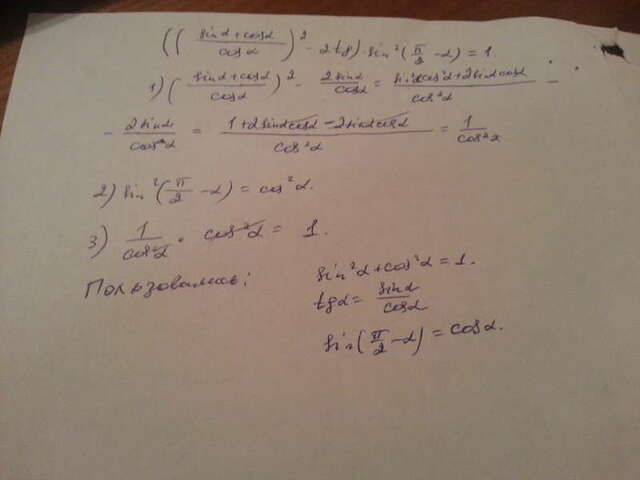 ((sinα+cosα / cosα)² - 2tgα)·sin²(π/2 - α) = 1.
1) (sinα+cosα / cosα)² - 2sinα / cosα = sin²α+cos²α+2sinαcosα / cos²α -
- 2sinα / cosα = 1+2sinαcosα-2sinαcosα / cos²α = 1 / cos²x
2) sin²(π/2 - α) = cos²α.
3) 1 / cos²α · cos²α = 1.
Пользовались:
sin²α+cos²α=1.
tgα = sinα / cosα
sin(π/2 - α) = cosα.